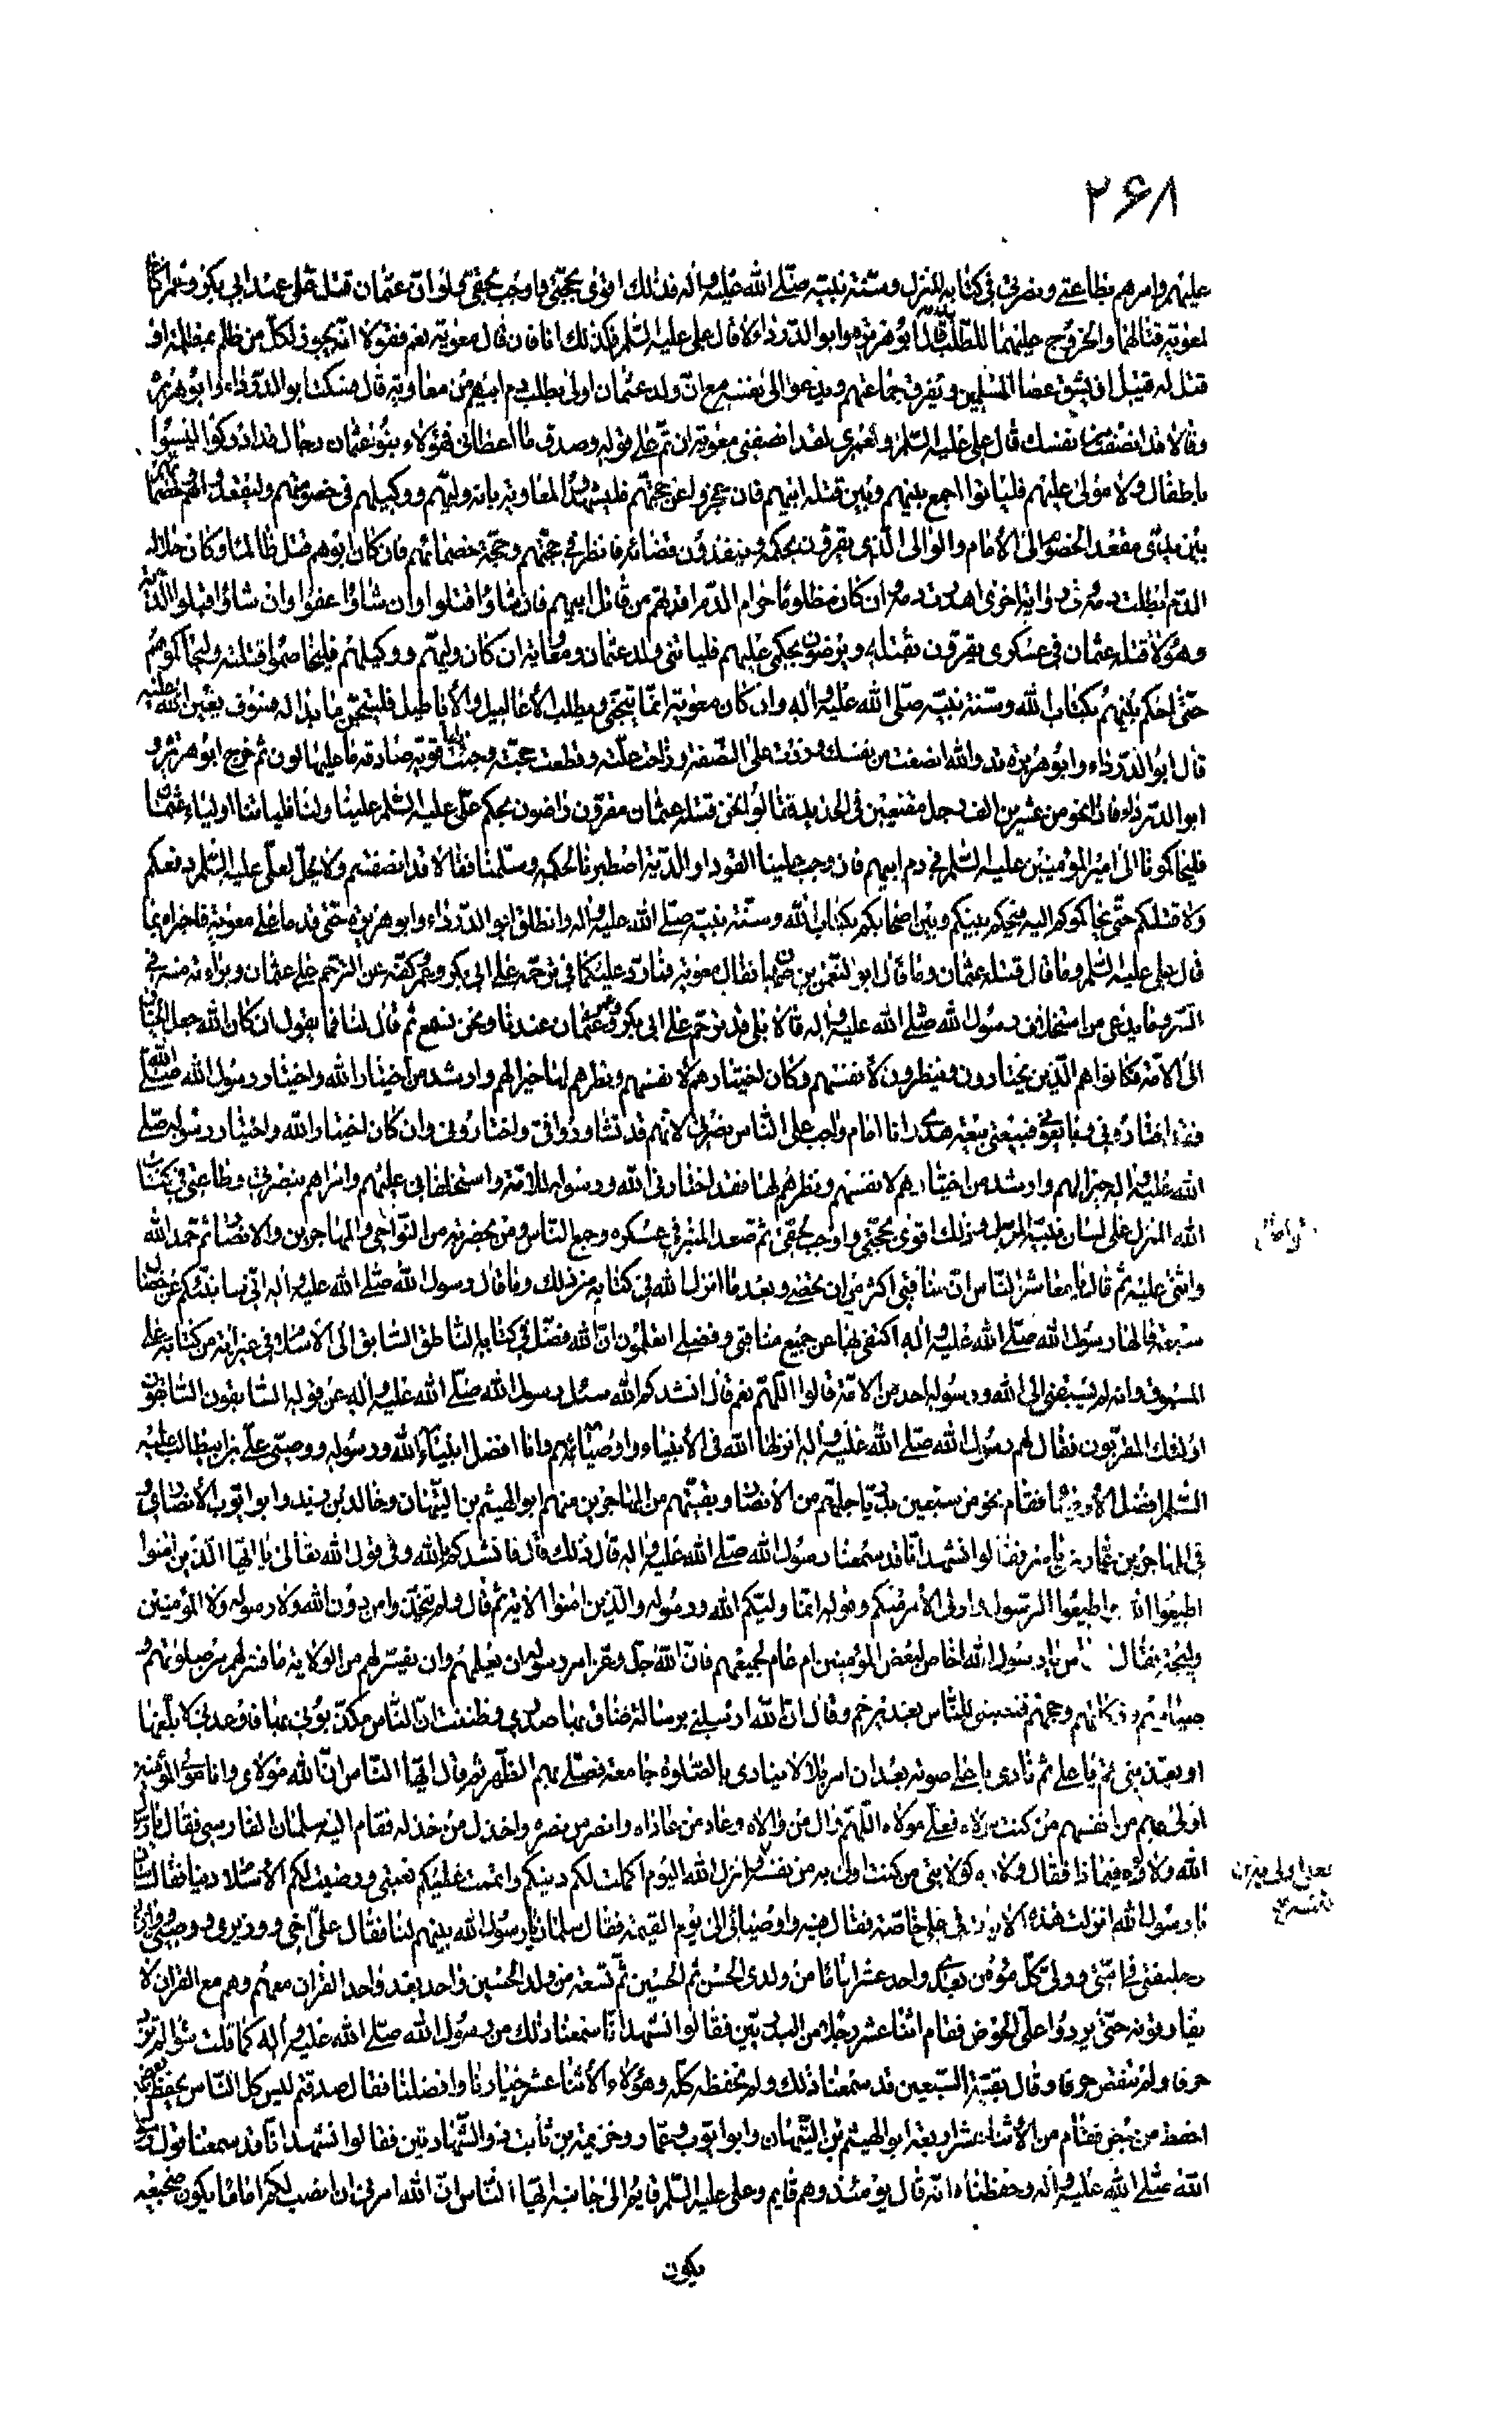 ۲۶۸
عليهم وامرهم بطاعتى ونصرتى فى كتابه المنزل وسنة نبيه صلى الله عليه واله فذلك اقوى بحجتى واوجب بحقى ولو ان عثمان قتل على عهد ابى بكر وعمر اكان
لمعوية قتالهما والخروج عليهما للطلب بدمه قال ابو هريرة وابو الدرداء لا قال على عليه السلم فكذلك انا فان قال معوية نعم فقولا اذا يجوز لكل من ظلم بمظلمة او
قتل له قتيل ان يشق عصا المسلمين ويفرق جماعتهم ويدعو الى نفسه مع ان ولد عثمان اولى بطلب دم ابيهم من معاوية قال فسكت ابو الدرداء وابو هريرة
وقالا قد انصفت من نفسك قال على عليه السلم ولعمرى لقد انصفنى معوية ان تم على قوله وصدق ما اعطانى فهؤلاء بنو عثمان رجال قد ادركوا ليسوا
باطفال ولا مولى عليهم فلياتوا اجمع بينهم وبين قتلة ابيهم فان عجزوا عن حجتهم فليشهدوا لمعاوية بانه وليهم ووكيلهم فى خصومتهم وليقعدوا هم وخصماؤهم
بين يدى مقعد الخصوم الى الامام والوالى الذى يقرون بحكمه وينفذون قضائه فانظر فى حجتهم وحجة خصمائهم فان كان ابوهم قتل ظالما وكان حلال
الدم ابطلت دمه وفى رواية اخرى اهدرت دمه وان كان مظلوما حرام الدم اقدتهم من قاتل ابيهم فان شاؤا قتلوا وان شاؤا عفوا وان شاؤا قبلوا الدية
وهؤلاء قتلة عثمان فى عسكرى يقرون بقتله ويرضون بحكمى عليهم فلياتنى ولد عثمان ومعاوية ان كان وليهم ووكيلهم فليخاصموا قتلته وليحاكموهم
حتى احكم بينهم بكتاب الله وسنة نبيه صلى الله عليه واله وان كان معوية انما يتجنى ويطلب الاعاليل والاباطيل فليتجن ما بدا له فسوف يعين الله عليه
قال ابو الدرداء وابو هريرة قد والله انصفت من نفسك وزدت على النصفة وزاحت علته وقطعت حجته وجئت بحجة قوية صادقة ما عليها لون ثم خرج ابو هريرة و
ابو الدرداء فاذا نحو من عشرين الف رجل مقنعين فى الحديد فقالوا نحن قتلة عثمان مقرون راضون بحكم على عليه السلم علينا ولنا فلياتنا اولياء عثمان
فليحاكمونا الى امير المؤمنين عليه السلم فى دم ابيهم فان وجب علينا القود او الدية اصطبرنا لحكمه وسلمنا فقالا قد انصفتم ولا يحل لعلى عليه السلم دفعكم
ولا قتلكم حتى يحاكموكم اليه فيحكم بينكم وبين اصحابكم بكتاب الله وسنة نبيه صلى الله عليه واله وانطلق ابو الدرداء وابو هريرة حتى قدما على معوية فاخبراه بما
قال على عليه السلم وما قال قتلة عثمان وما قال ابو النعمن بن ضمان فقال معوية فما رد عليكما فى ترحمه على ابى بكر وعمر وكفه عن الترحم على عثمان وبراءته منه فى
السر وما يدعى من استخلاف رسول الله صلى الله عليه واله قالا بلى قد ترحم على ابى بكر وعمر وعثمان عندنا ونحن نسمع ثم قال لنا فيما يقول ان كان الله جعل الخيار
الى الامة فكانوا هم الذين يختارون وينظرون لانفسهم وكان اختيارهم لانفسهم ونظرهم لها خيرا لهم وارشد من اختيار الله واختيار رسول الله صلى الله
فقد اختارونى وبايعونى فبيعتى بيعة هدى وانا امام واجب على الناس نصرتى لانهم قد تشاوروا فى واختارونى وان كان اختيار الله واختيار رسوله صلى
الله عليه واله خيرا لهم وارشد من اختيارهم لانفسهم ونظرهم لها فقد اختارنى الله ورسوله للامة واستخلفانى عليهم وامراهم بنصرتى وطاعتى فى كتاب
الله المنزل على لسان نبيه المرسل وذلك اقوى بحجتى واوجب بحقى ثم صعد المنبر فى عسكره وجمع الناس ومن بحضرته من النواحى والمهاجرين والانصار ثم حمد الله
واثنى عليه ثم قال يا معاشر الناس ان مناقبى اكثر من ان تحصى وبعد ما انزل الله فى كتابه من ذلك وما قال رسول الله صلى الله عليه واله انى سانبئكم عن خصال
سبعة قالها رسول الله صلى الله عليه واله اكتفى بها عن جميع مناقبى وفضلى اتعلمون ان الله فضل فى كتابه الناطق السابق الى الاسلام فى غير اية من كتابه على
المسبوق وانه لم يسبقنى الى الله ورسوله احد من الامة قالوا اللهم نعم قال انشدكم الله سئل رسول الله صلى الله عليه واله عن قوله السابقون السابقون
اولئك المقربون فقال لهم رسول الله صلى الله عليه واله انزلها الله فى الانبياء واوصيائهم وانا افضل انبياء الله ورسوله ووصيى على بن ابيطالب عليه
السلم افضل الاوصياء فقام نحو من سبعين بدريا جلهم من الانصار وبقيتهم من المهاجرين منهم ابو الهيثم بن التيهان وخالد بن زيد وابو ايوب الانصارى و
فى المهاجرين عمار بن ياسر فقالوا نشهد انا قد سمعنا رسول الله صلى الله عليه واله قال ذلك قال فانشدكم الله وفى قول الله تعالى يا ايها الذين امنوا
اطيعوا الله واطيعوا الرسول واولى الامر منكم وقوله انما وليكم الله ورسوله والذين امنوا الاية ثم قال ولم يتخذوا من دون الله ولا رسوله ولا المؤمنين
وليجة فقال الناس يا رسول الله اخاص لبعض المؤمنين ام عام لجميعهم فان الله جل وعز امر رسوله ان يعلمهم وان يفسر لهم من الولاية ما فسر لهم من صلوتهم و
صيامهم وزكاتهم وحجهم فنصبنى للناس بغدير خم وقال ان الله ارسلنى برسالة ضاق بها صدرى وظننت ان الناس مكذبونى بها فاوعدنى لابلغها
او يعذبنى قم يا على ثم نادى باعلى صوته بعد ان امر بلالا ينادى بالصلوة جامعة فصلى بهم الظهر ثم قال ايها الناس ان الله مولاى وانا مولى المؤمنين
اولى بهم من انفسهم من كنت مولاه فعلى مولاه اللهم وال من والاه وعاد من عاداه وانصر من نصره واخذل من خذله فقام اليه سلمان الفارسى فقال يا رسول
الله ولاؤه فيماذا فقال ولاؤه كولايتى من كنت اولى به من نفسه وانزل الله اليوم اكملت لكم دينكم واتممت عليكم نعمتى ورضيت لكم الاسلام دينا فقال سلمان
يا رسول الله انزلت هذه الايات فى على خاصة فقال فيه واوصيائى الى يوم القيمة فقال سلمان يا رسول الله بينهم لنا فقال على اخى ووزيرى ووصيى ووارثى
وخليفتى فى امتى وولى كل مؤمن بعدى واحد عشر اماما من ولدى الحسن ثم الحسين ثم تسعة من ولد الحسين واحد بعد واحد القران معهم وهم مع القران لا
يفارقونه حتى يردوا على الحوض فقام اثنا عشر رجلا من البدريين فقالوا نشهد انا سمعنا ذلك من رسول الله صلى الله عليه واله كما قلت سواء لم تزد
حرفا ولم تنقص حرفا وقال بقية السبعين قد سمعنا ذلك ولم نحفظ كله وهؤلاء الاثنا عشر خيارنا وافضلنا فقال صدقتم ليس كل الناس يحفظ بعضهم
احفظ من بعض فقام من الاثنا عشر اربعة ابو الهيثم بن التيهان وابو ايوب وعمار وخزيمة بن ثابت ذو الشهادتين فقالوا نشهد انا قد سمعنا قول رسول
الله صلى الله عليه واله وحفظناه انه قال يومئذ وهو قايم وعلى عليه السلم قايم الى جانبه ايها الناس ان الله امرنى ان انصب لكم اماما يكون وصيى فيه
يكون